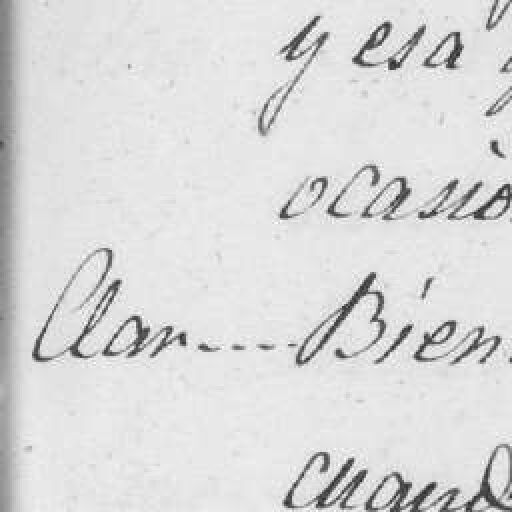 y esa
ocasio
Clar.... Bien.
cuand